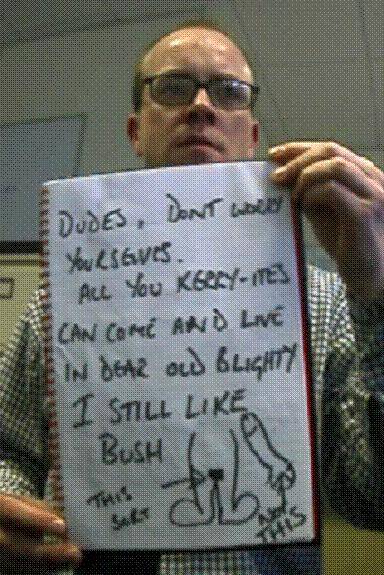 DUDES, DONT WORRY
YOURSELVES.
ALL YOU KERRY-ITES
CAN COME AND LIVE
IN DEAR OLD BLIGHTY
I STILL LIKE
BUSH
THIS
SORT
NOT
THIS